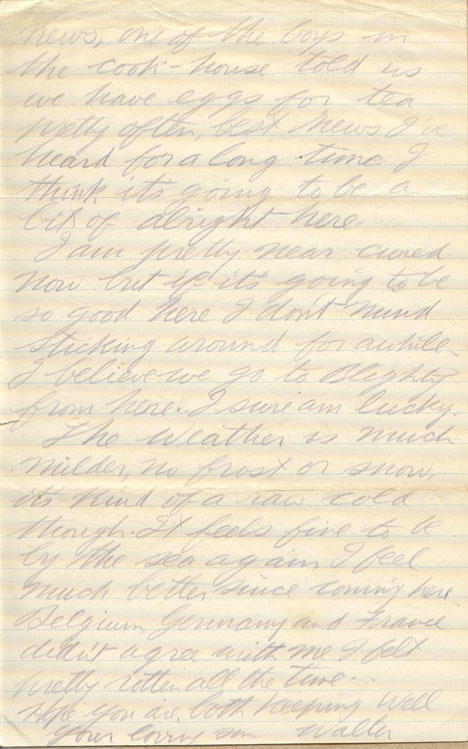 news, one of the boys in
the cook-house told us
we have eggs for tea
pretty often, best news I've
heard for a long time. I
think it's going to be a
bit of alright here.
I am pretty near cured
now but if it's going to be
so good here I don't mind
sticking around for awhile
I believe we go to Blighty
from here. I sure am lucky.
The weather is much
milder, no frost or snow,
its kind of a raw cold
though. It feels fine to be
by the sea again I feel
much better since coming here
Belgium, Germany and France
didn't agree with me I felt
pretty rotten all the time.
Hope you are both keeping well
Your loving son Walter